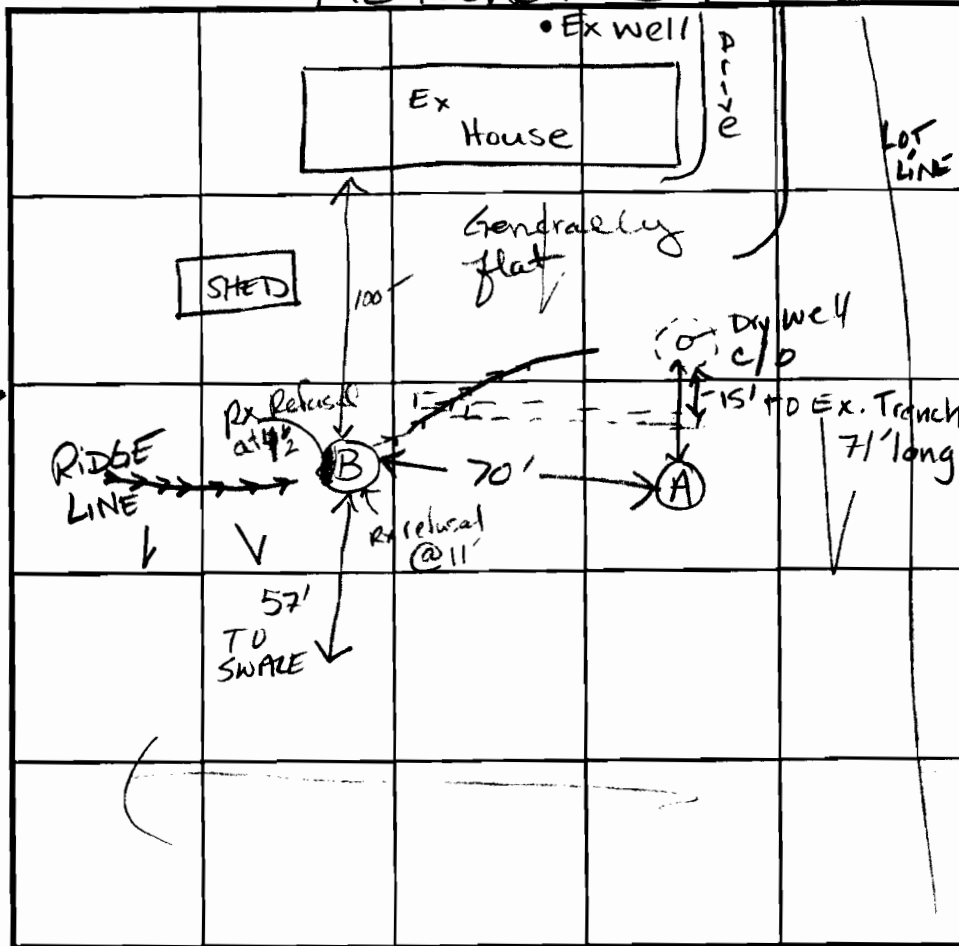 • Ex well
Drive
Ex
House
LOT
LINE
Generally
flat
SHED
100
Dry well
c/o
15' TO Ex. Trench
71' long
Rx Refusal
RIDGE
LINE
B
70'
A
Rx refusal
@ 11'
57'
TO
SWALE